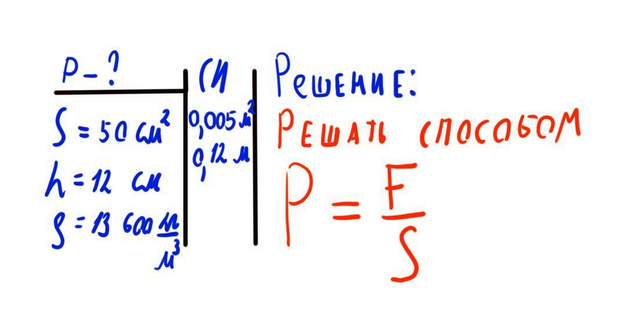 P – ?
S = 50 см²
h = 12 см
ρ = 13 600 кг/м³
СИ
0,005 м²
0,12 м
Решение:
Решать способом
P = F/S